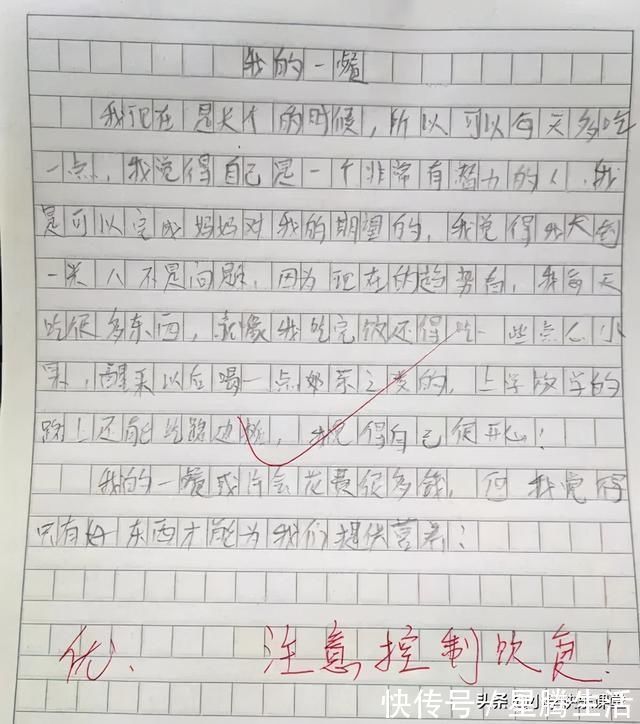 我的一餐
我现在是长个的时候,所以可以每天多吃
一点,我觉得自己是一个非常有潜力的人,我
是可以完成妈妈对我的期望的,我觉得我长到
一米八不是问题,因为现在的趋势高,我每天
吃很多东西,就像我吃完饭还得吃一些点心水
果,醒来以后喝一点奶茶之类的,上学放学的
路上还能吃路边摊,我觉得自己很开心!
我的一餐或许会花费很多钱,但我觉得
只有好东西才能为我们提供营养!
优、 注意控制饮食!
快传号/星腾生活
头条
课堂